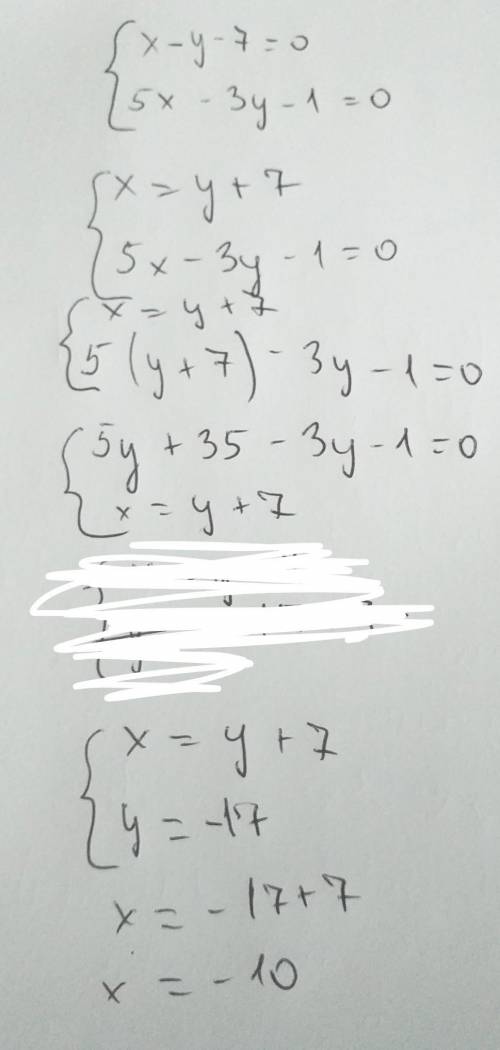 x - y - 7 = 0
5x - 3y - 1 = 0
x = y + 7
5x - 3y - 1 = 0
x = y + 7
5(y + 7) - 3y - 1 = 0
5y + 35 - 3y - 1 = 0
x = y + 7
x = y + 7
y = -17
x = -17 + 7
x = -10